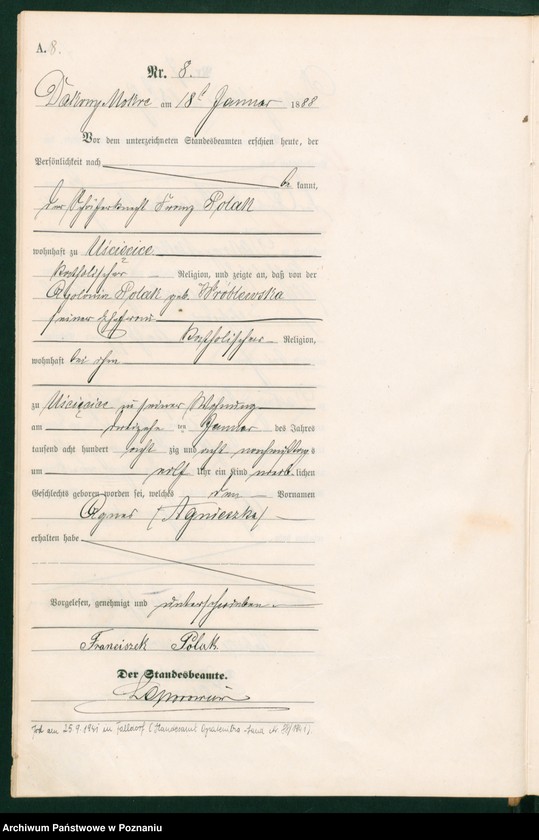 A. 8.
Nr. 8.
Dakowy Mokre am 18t Januar 1888
Vor dem unterzeichneten Standesbeamten erschien heute, der
Persönlichkeit nach
be kannt,
der Schäferknecht Franz Polak
wohnhaft zu Uścięcice
katholischer Religion, und zeigte an, daß von der
Apolonia Polak geb. Wróblewska
seiner Ehefrau
katholischer Religion,
wohnhaft bei ihm
zu Uścięcice in seiner Wohnung
am dreizehn ten Januar des Jahres
tausend acht hundert acht zig und acht nachmittags
um elf Uhr ein Kind weib lichen
Geschlechts geboren worden sei, welches den Vornamen
Agnes (Agnieszka)
erhalten habe
Vorgelesen, genehmigt und unterschrieben
Franciszek Polak
Der Standesbeamte.
am 25.9.1941 in (Standesamt Opalenitza Nr. /1941).
Archiwum Państwowe w Poznaniu